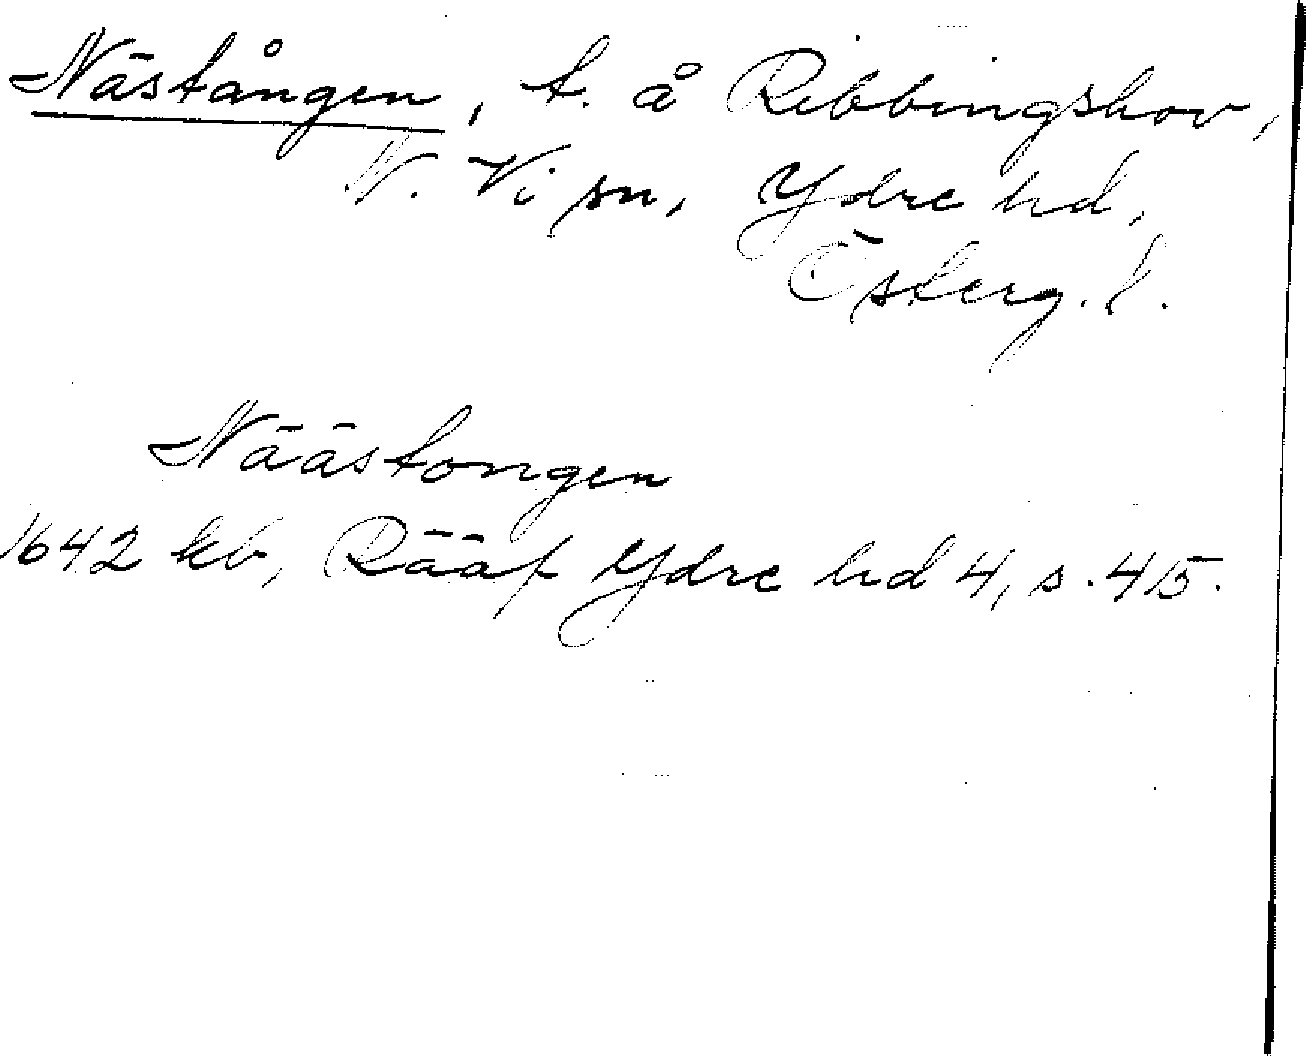 Nästången, t. å Ribbingshov,
N. Vi sn, Ydre hd,
Österg. l.
Näästongen
1642 kb, Rääf Ydre hd 4, s. 415.